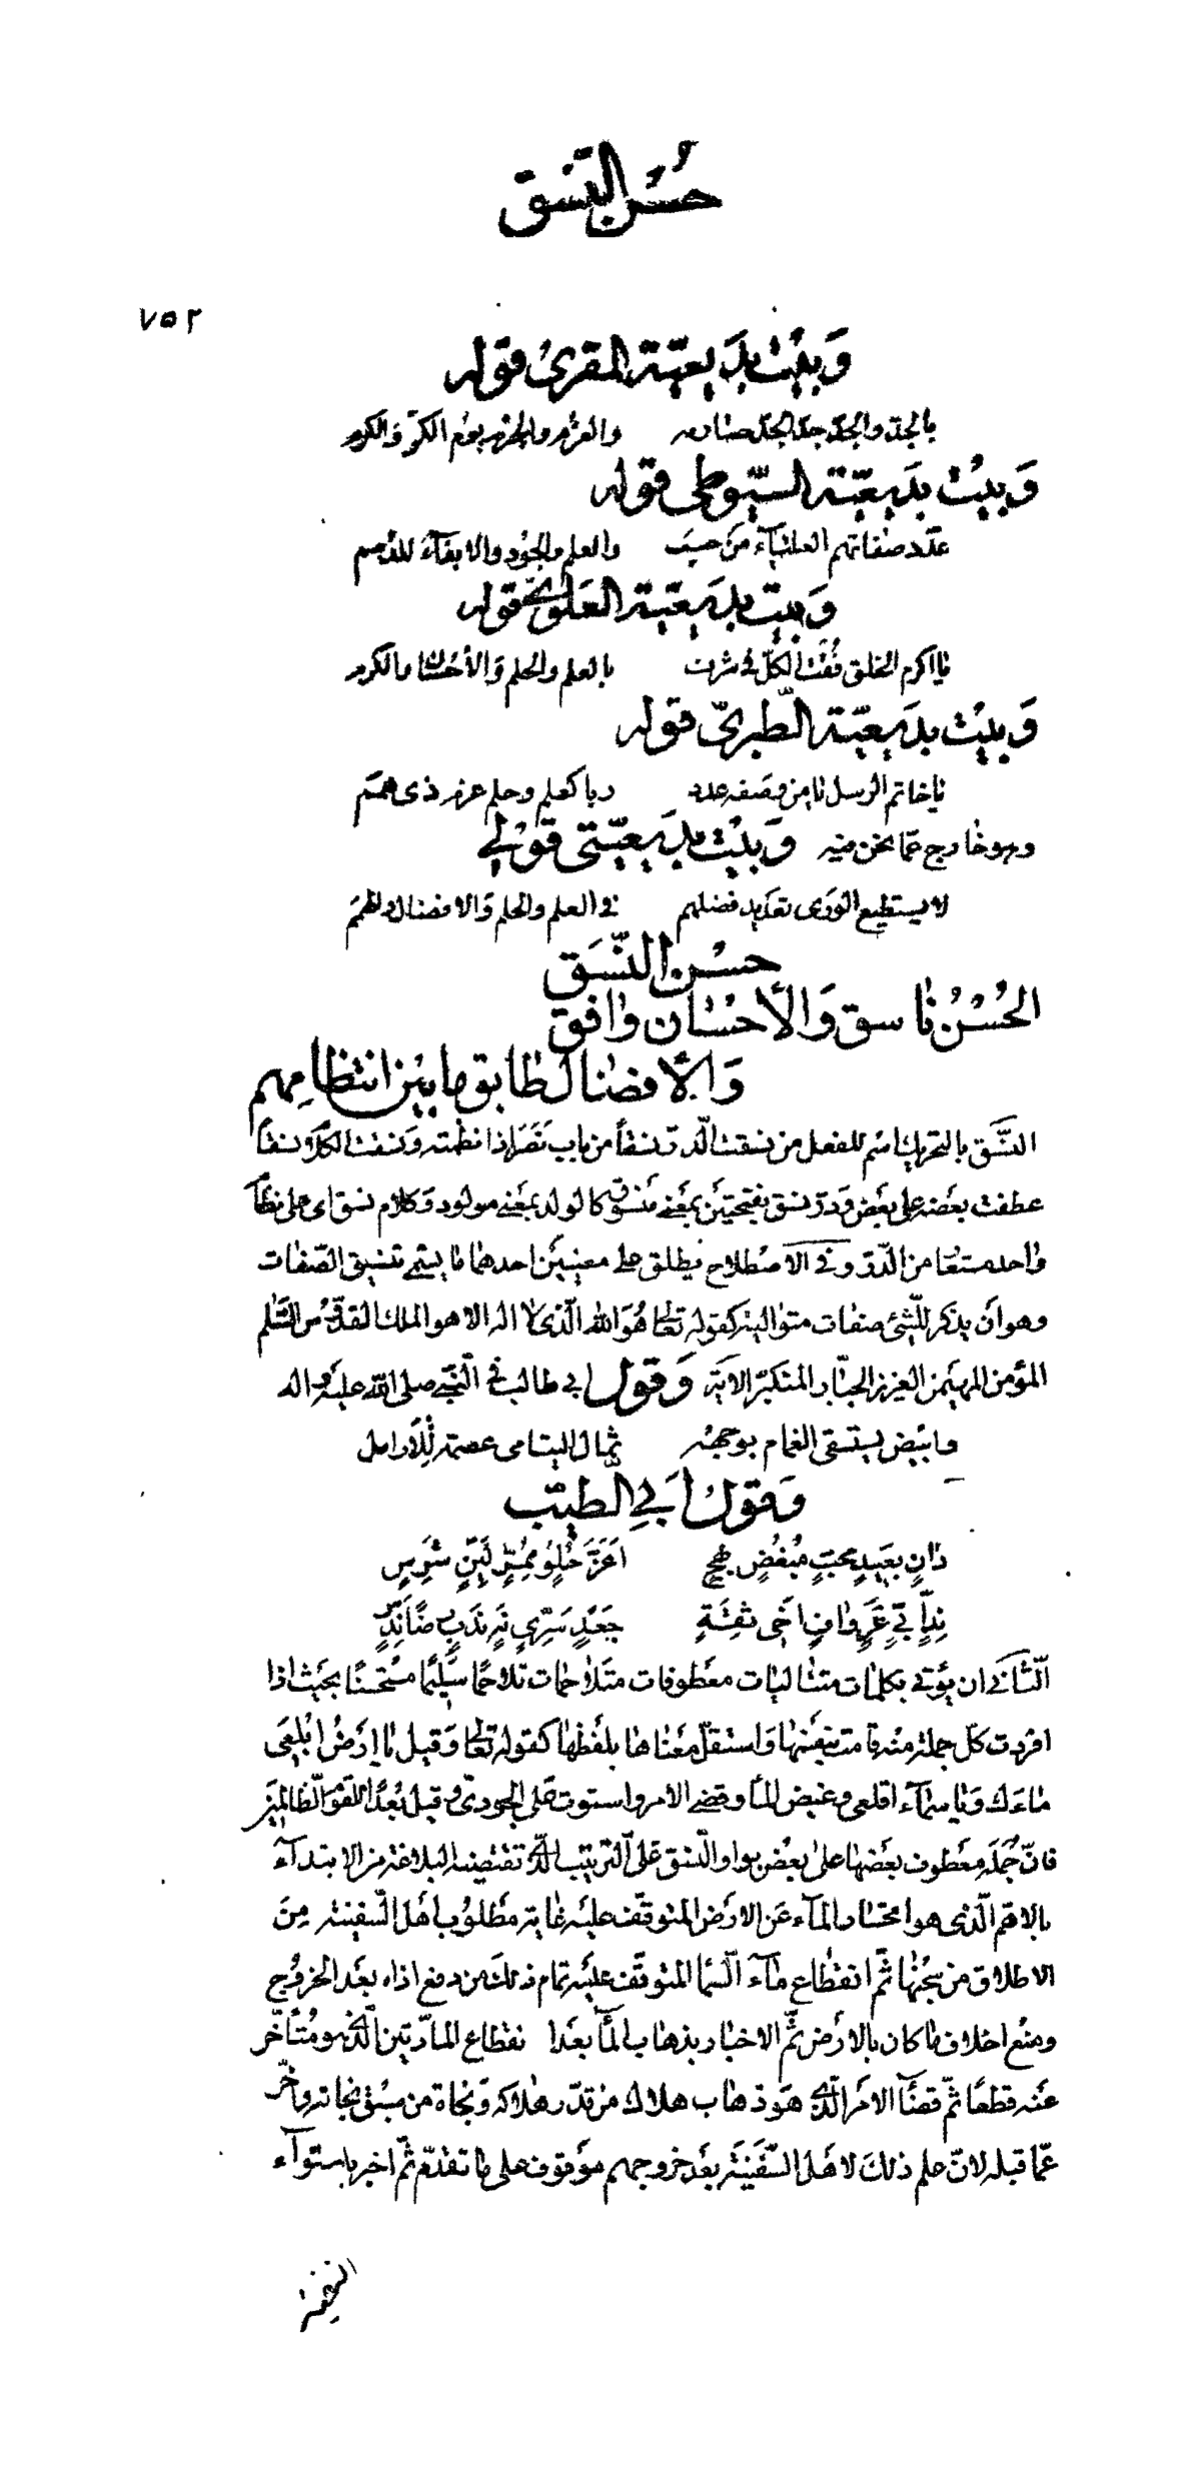 حُسْن النَّسَق
٧٥٢
وَبيت بديعيّة المقرئ قوله
بالجد والجدّ جدّ الجدّ صارمه والعزم والحزم يوم الكرّ والكرم
وَبيت بديعيّة السيّوطى قوله
عدّد صفاتهم العليآء من حسب والعلم والجود والايفآء للذمم
وَبيت بديعيّة العلوىّ قوله
يا اكرم الخلق فُقْتَ الكلّ فى شرف بالعلم والحلم والأحسان والكرم
وَبيت بديعيّة الطبرىّ قوله
يا خاتم الرسل يا من وصفه عدد وباء كعلم وحلم عزم ذى همم
وهو خارج عمّا نحن فيه وَبيت بديعيّتى قولى
لا يستطيع الورى تعديد فضلهم فى العلم والحلم والافضال والهمم
حسن النّسَق
الحُسْنُ ناسق وَالأحْسَان وافق
وَالأفضال طابق ما بين انتظامهم
النَّسَق بالتحريك اسم للفعل من نسقت الّدرّ نسقاً من باب نَصَرَ اذا نظمته وَنسقت الكلام نسقاً
عطفت بعضه على بعض وَدرّ نسق بفتحتين بمعنى منسوق كالولد بمعنى مولود وَكلام نسق اى على نظام
واحد مستعا من الّدرّ وفى الاصطلاح يطلق على معنيين احدهما ما يسمّى تنسيق الصّفات
وهو أن يذكر للشّئ صفات متوالية كقوله تعالى هُوَ الله الّذى لا اله الا هو الملك القدّوس السّلم
المؤمن المهيمن العزيز الجبّار المتكبّر الآية وَقول ابى طالب فى النّبىّ صلى الله عليه وآله
وابيض يستسقى الغمام بوجهه ثمال اليتامى عصمة للأرامل
وَقول أبى الطيّب
دانٍ بعيدٍ محبٍّ مبغضٍ بهجٍ اعزّ حُلوٍ ممرٍّ ليّنٍ شرسٍ
ندٍ أبىٍّ غرٍ وافٍ اخى ثقةٍ جعدٍ سرىٍّ نهٍ ندبٍ رضاً ندسٍ
الّثانى ان يؤتى بكلمات متتاليات معطوفات متلاحمات تلاحمًا سليمًا مستحسنًا بحيث اذا
افردت كلّ جملة منه قامت بنفسها وَاستقلّ معناها بلفظها كقوله تعالى وَقيل يا ارض ابلعى
ماءك وَيا سمآء اقلعى وغيض المآء وقضى الامر واستوت على الجودىّ وقيل بعدًا للقوم الّظالمين
فانّ جمله معطوف بعضها على بعض بواو الّنسق على الّترتيب الّذى تقتضيه البلاغة من الابتدآء
بالاهم الّذى هو انحسار المآء عن الارض المتوقّف عليه غاية مطلوب اهل الّسفينة مِنَ
الاطلاق من سجنها ثمّ انقطاع مآء الّسما المتوقّف عليه تمام ذلك من دفع اذاه بعد الخروج
ومنع اخلاف ما كان بالارض ثمّ الاخبار بذهاب المآء بعد انقطاع المادّتين الّذى هو متأخّر
عنه قطعًا ثمّ قضآء الامر الّذى هو ذهاب هلاك من قدّر هلاكه وَنجاة من سبق نجاته واخّر
عمّا قبله لانّ علم ذلك لاهل السّفينة بعد خروجهم موقوف على ما تقدّم ثمّ اخبر باستوآء
السّفينة